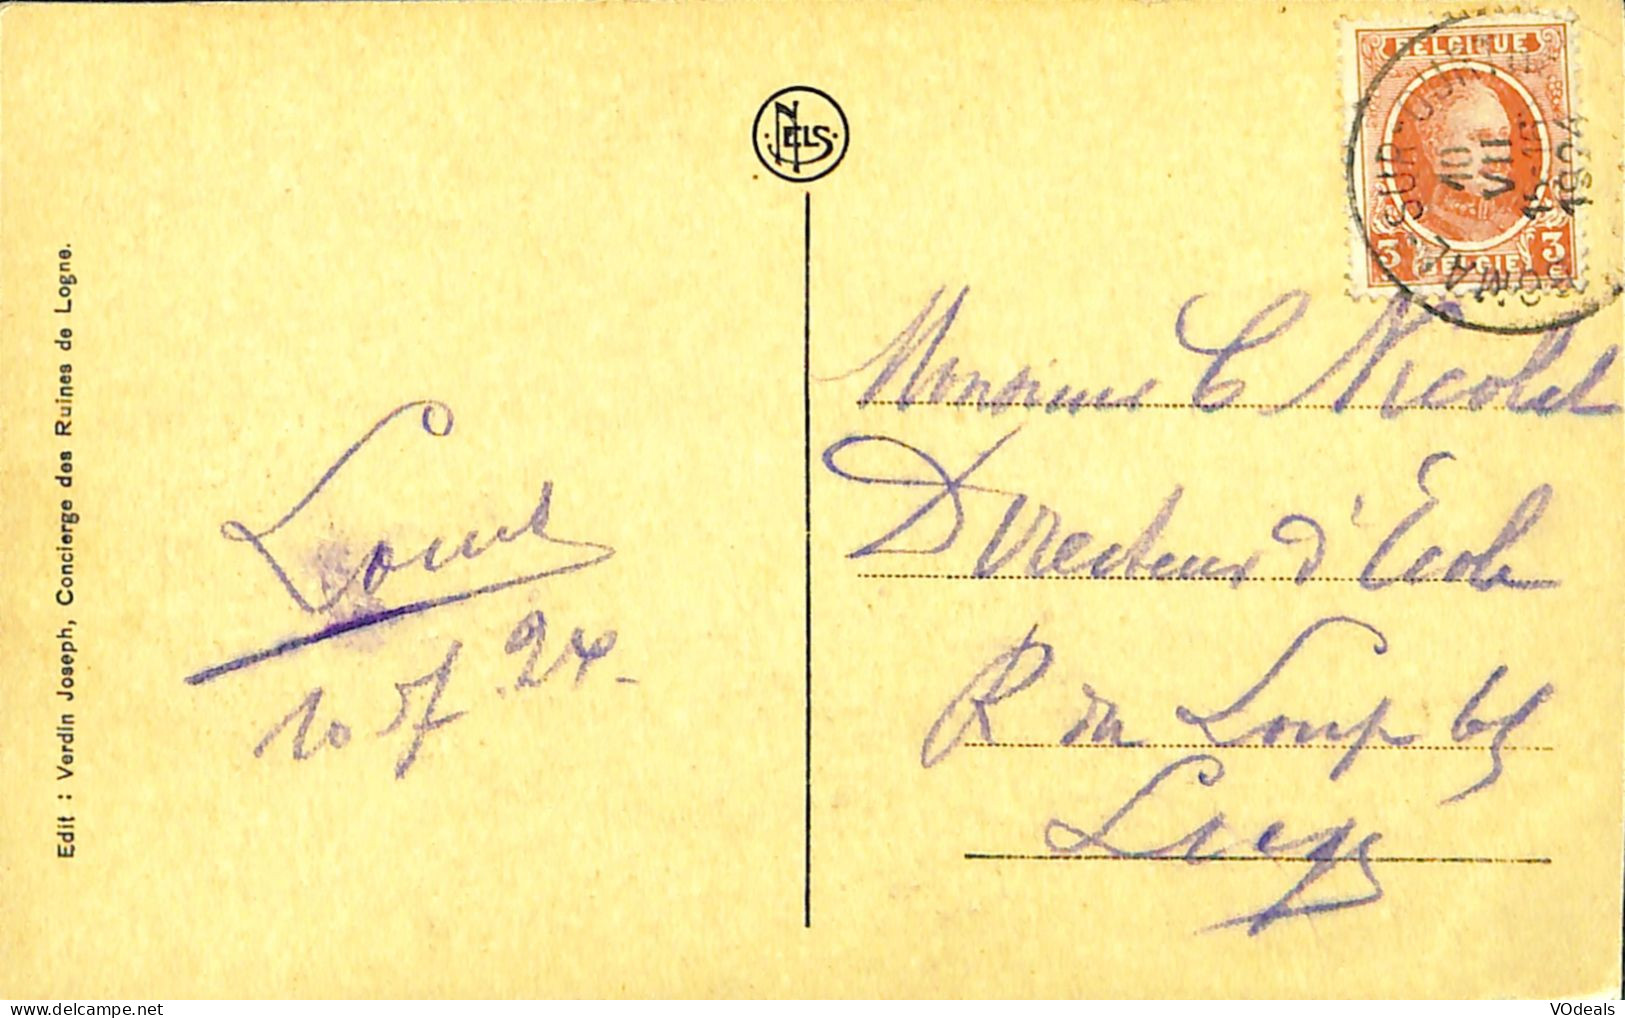 BELGIQUE
3 3
BELGIE
COMBLAIN "SUR"
10
VII
15-16
1924
NELS
Edit : Verdin Joseph, Concierge des Ruines de Logne.
Monsieur C Nicolet
Directeur d'École
R du Loup
Liege
Louis
10 7 24-
VOdeals